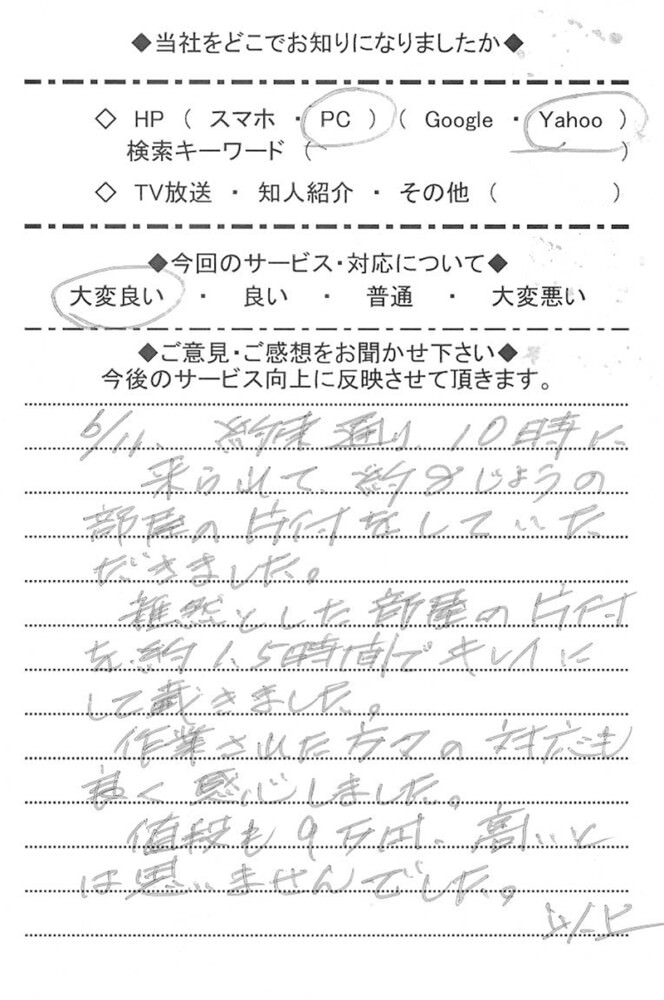 ◆当社をどこでお知りになりましたか◆
◇ HP ( スマホ ・ PC ) ( Google ・ Yahoo )
検索キーワード ( )
◇ TV放送 ・ 知人紹介 ・ その他 ( )
◆今回のサービス・対応について◆
大変良い ・ 良い ・ 普通 ・ 大変悪い
◆ご意見・ご感想をお聞かせ下さい◆
今後のサービス向上に反映させて頂きます。
6/11、約束通り、10時に
来られて、約8じょうの
部屋の片付をしていた
だきました。
雑然とした部屋の片付
を約1.5時間でキレイに
して戴きました。
作業された方々の対応も
良く感心しました。
値段も9万円、高いと
は思いませんでした。
以上